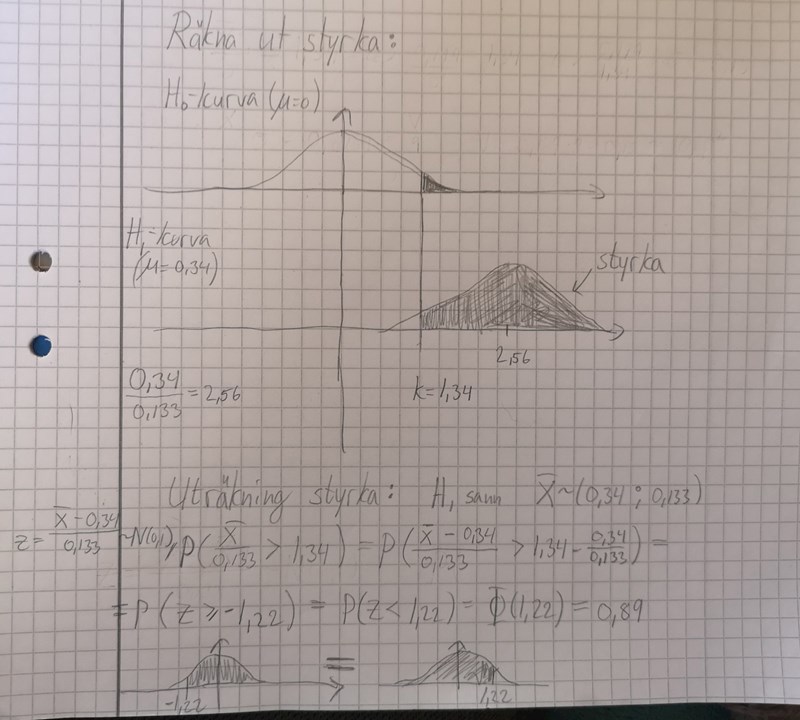 Räkna ut styrka:
H₀-kurva (μ=0)
H₁-kurva
(μ=0,34)
styrka
2,56
0,34/0,133 = 2,56
k=1,34
Uträkning styrka: H₁ sann X̄~(0,34 ; 0,133)
z = (X̄-0,34)/0,133 ~N(0,1), P(X̄/0,133 > 1,34) = P((X̄-0,34)/0,133 > 1,34 - 0,34/0,133) =
=P(z ≥ -1,22) = P(z < 1,22) = Φ(1,22) = 0,89
=
-1,22
1,22